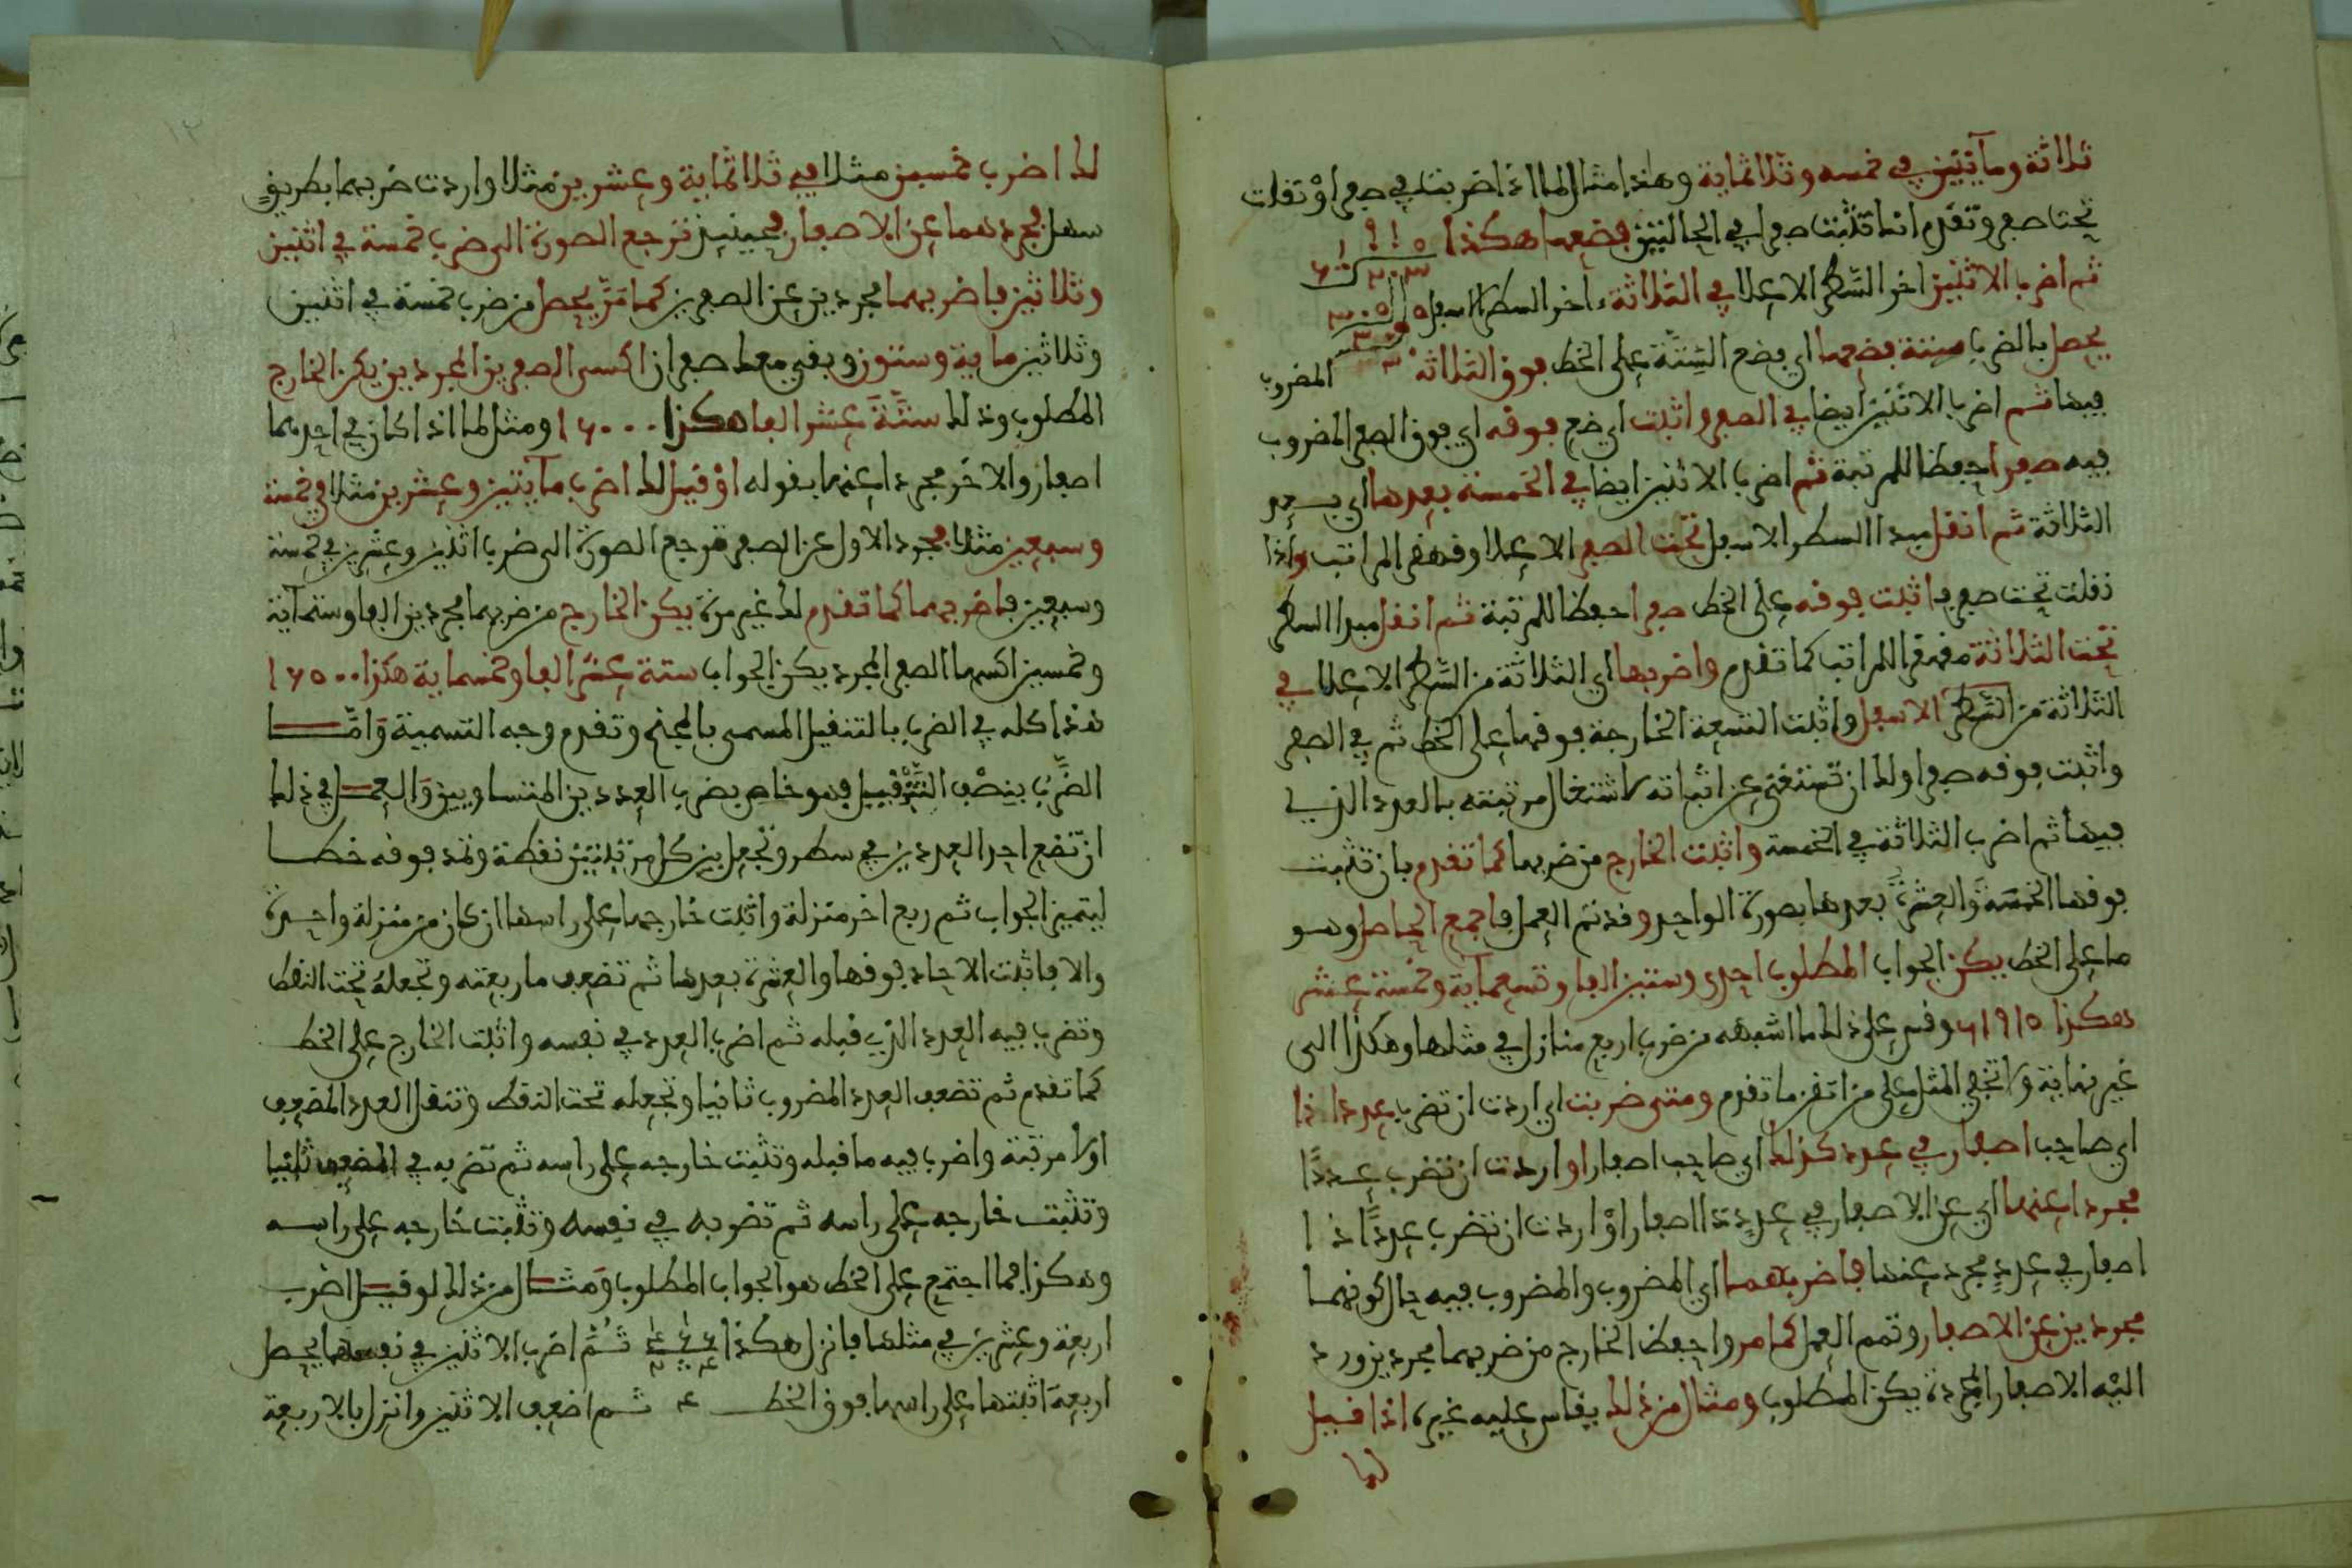 ثلاثة ومآيتين في خمسه وثلاثماية وهذا مثال لما اذا ضربت في صفر او نقلت
تحت صفر وتقدم انك تثبت صفرا في الحالتين فضعها هكذا
ثم اضرب الاثنين اخر السطر الاعلا في الثلاثة اخر السطر الاسفل
يحصل بالضرب ستة فضعها اي فضع الستة على الخط فوق الثلاثة المضروب
فيها ثم اضرب الاثنين ايضا في الصفر واثبت اي ضع فوقه اي فوق الصفر المضروب
فيه صفرا حفظا للمرتبة ثم اضرب الاثنين ايضا في الخمسة بعدها اي بعد
الثلاثة ثم انقل مبدا السطر الاسفل تحت الصفر الاعلا وقهقر المراتب واذا
نقلت تحت صفر فاثبت فوقه على الخط صفرا حفظا للمرتبة ثم انقل مبدا السطر
تحت الثلاثة مقهقرا للمراتب كما تقدم واضربها اي الثلاثة من السطر الاعلا في
الثلاثة من السطر الاسفل واثبت التسعة الخارجة فوقها على الخط ثم في الصفر
واثبت فوقه صفرا ولك ان تستغني عن اثباته لاشتغال مرتبته بالعدد الذي
فيها ثم اضرب الثلاثة في الخمسة واثبت الخارج من ضربها كما تقدم بان تثبت
فوقها الخمسة والعشرة بعدها بصورة الواحد وقد تم العمل فاجمع الحاصل وهو
ما على الخط يكن الجواب المطلوب احدى وستين الفا وتسعمآية وخمسة عشر
هكذا ٦١٩١٥ وقس على ذلك ما اشبهه من ضرب اربع منازل في مثلها وهكذا الى
غير نهاية ولا تخفى المثل على من اتقن ما تقدم ومتى ضربت اي اردت ان تضرب عددا ذا
اي صاحب اصفار في عدد كذلك اي صاحب اصفار او اردت ان تضرب عددًا
مجردا عنها اي عن الاصفار في عددٍ ذا اصفار اوْ اردت ان تضرب عددًا ذا
اصفار في عددٍ مجرد عنها فاضربهما اي المضروب والمضروب فيه حال كونهما
مجردين عن الاصفار وتمم العمل كما مر واحفظ الخارج من ضربهما مجردين ورد
اليْه الاصفار المجردة يكن المطلوب ومثال من ذلك يقاس عليه غيره اذا قيل
لك
١٢
لك اضرب خمسين مثلا في ثلاثماية وعشرين مثلا واردت ضربهما بطريق
سهل فجردهما عن الاصفار فحينيذ ترجع الصورة الى ضرب خمسة في اثنين
وثلاثين فاضربهما مجردين عن الصفرين كما مَرّ يحصل من ضرب خمسة في اثنين
وثلاثين ماية وستون وبقي معك صفران اكسى الصفرين المجردين يكن الخارج
المطلوب وذلك ستَّةَ عشر الفا هكذا ١٦٠٠٠ ومثل لما اذا كان في احدهما
اصفار والاخَر مجردا عنها بقوله اوْ قيل لك اضرب مآيتين وعشرين مثلا في خمسة
وسبعين مثلا فجرد الاول عن الصفر ترجع الصورة الى ضرب اثنين وعشرين في خمسة
وسبعين فاضربهما كما تقدم لك غير مرة يكن الخارج من ضربهما مجردين الفا وستمآية
وخمسين اكسها الصفر المجرد يكن الجواب ستة عشر الفا وخمسماية هكذا ١٦٥٠٠
هذا كله في الضرب بالتنقيل المسمى بالمجنح وتقدم وجه التسمية وَامّا
الضَّربُ بنصْف التَّنْقيل فهو خاص بضرب العددين المتساويين وَالعمل في ذلك
ان تضع احد العددين في سطر وتجعل بين كل مرتبتين نقطة وتمد فوقه خطا
ليتميز الجواب ثم ربع اخر منزلة واثبت خارجها على راسها ان كان من منزلة واحدة
والا فاثبت الاحاد فوقها والعشرة بعدها ثم تضعف ما ربعته وتجعله تحت النقط
وتضرب فيه العدد الذي قبله ثم اضرب العدد في نفسه واثبت الخارج على الخط
كما تقدم ثم تضعف العدد المضروب ثانيا وتجعله تحت النقط وتنقل العدد المضعف
اولا مرتبة واضرب فيه ما قبله وتثبت خارجه على راسه ثم تضربه في المضعف ثانيا
وتثبت خارجه على راسه ثم تضربه في نفسه وتثبت خارجه على راسه
وهكذا فما اجتمع على الخط هو الجواب المطلوب وَمثال من ذلك لو قيل اضرب
اربعة وعشرين في مثلها فانزل هكذا ثُمَّ اضرب الاثنين في نفسها يحصل
اربعة اثبتها على راسها فوق الخط ٤ ثم اضعف الاثنين وانزل بالاربعة